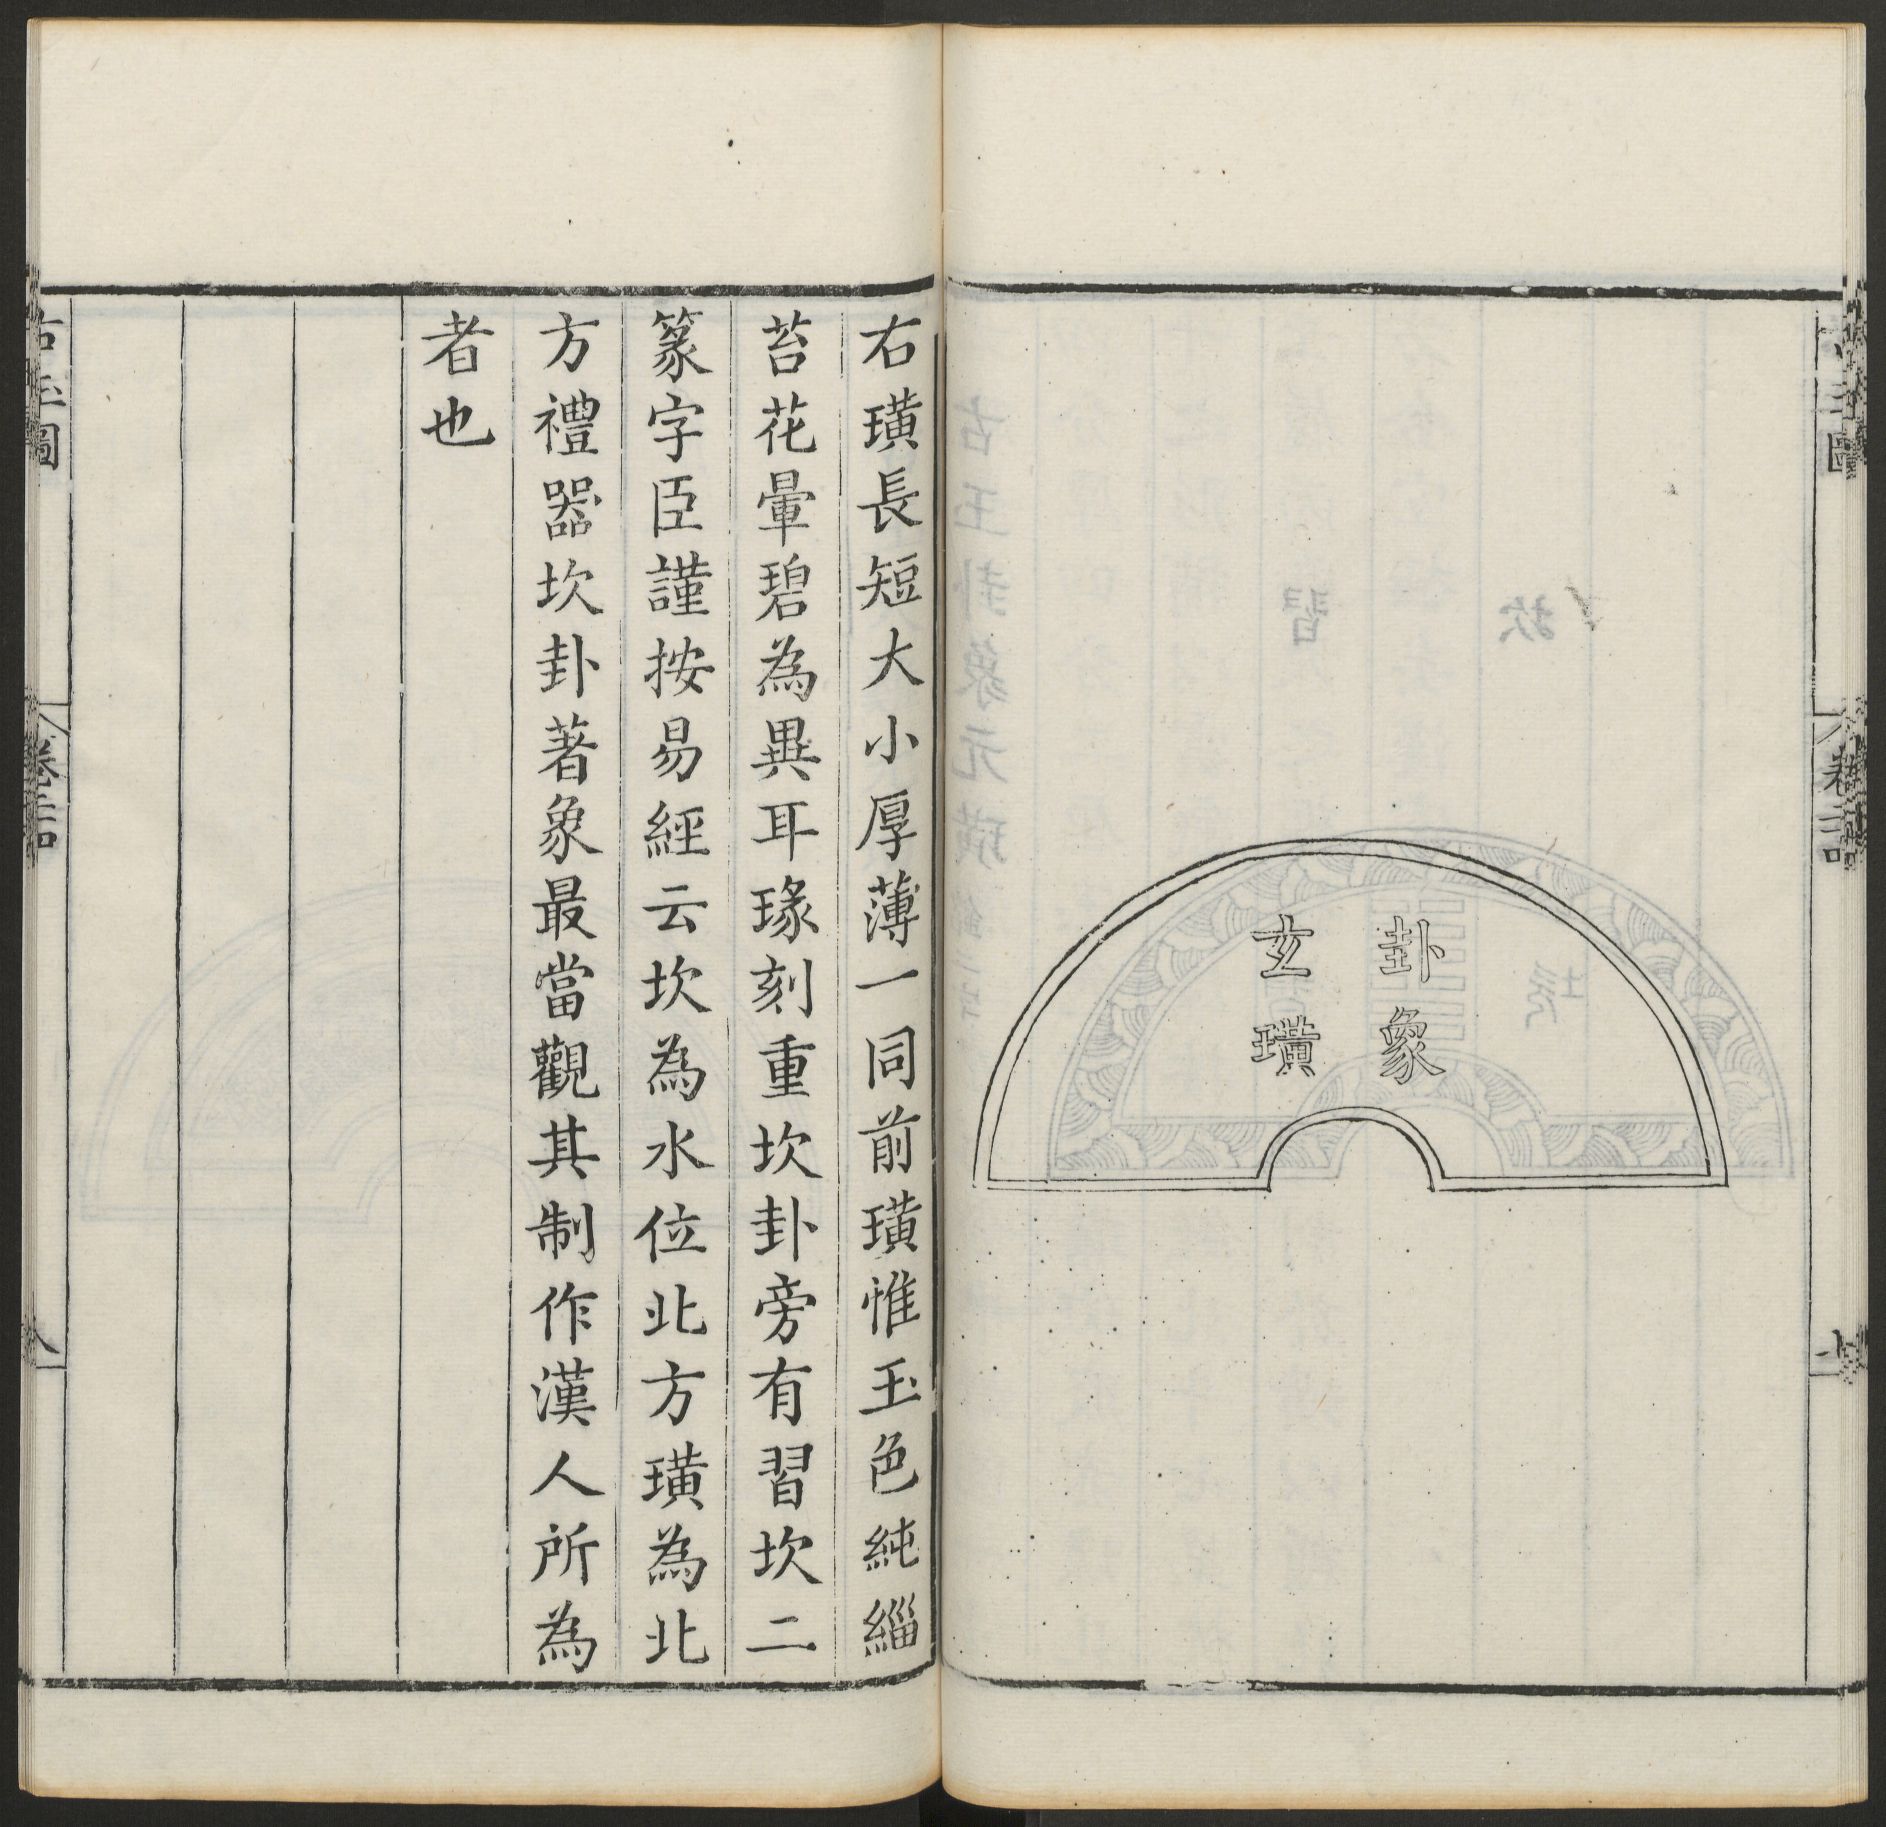 卦象
玄璜
右璜長短大小厚薄一同前璜惟玉色純緇
苔花暈碧為異耳瑑刻重坎卦旁有習坎二
篆字臣謹按易經云坎為水位北方璜為北
方禮器坎卦著象最當觀其制作漢人所為
者也